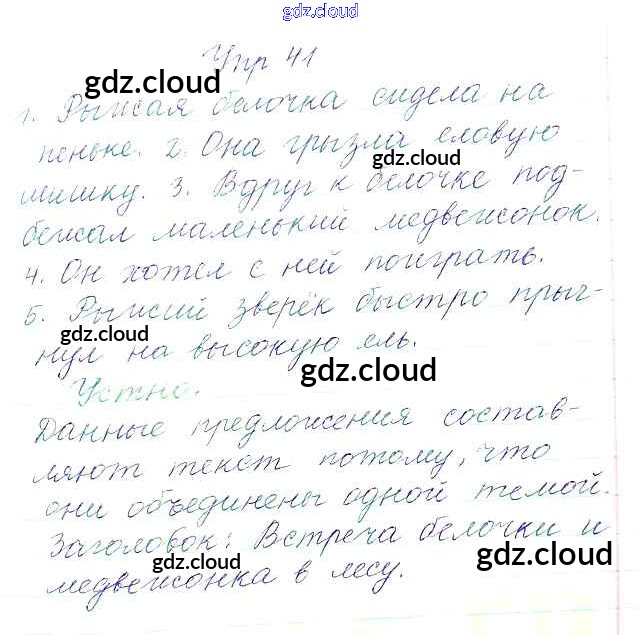 gdz.cloud
Упр 41
gdz.cloud
1. Рыжая белочка сидела на
пеньке. 2. Она грызла еловую
gdz.cloud
шишку. 3. Вдруг к белочке под-
бежал маленький медвежонок.
4. Он хотел с ней поиграть.
5. Рыжий зверёк быстро прыг-
gdz.cloud
нул на высокую ель.
gdz.cloud
Устно.
Данные предложения состав-
ляют текст потому, что
они объединены одной темой.
Заголовок: Встреча белочки и
gdz.cloud gdz.cloud
медвежонка в лесу.